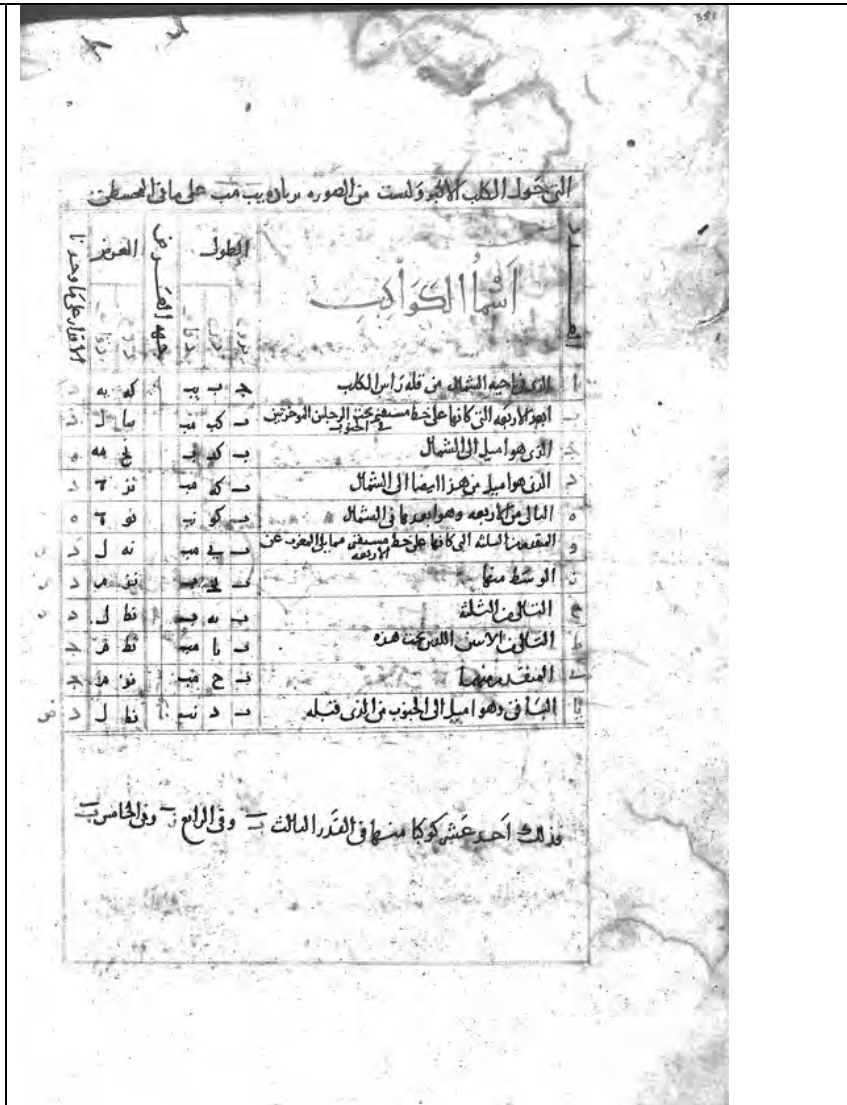 351
التى حول الكلب الاكبر وليست من الصوره بزياده يب مب على ما فى المجسطى
العدد
اسما الكواكب
الطول
جهه العرض
العرض
الاقدار على ما وجدنا
بروج درج دقايق
درج دقايق
ا الذى فى ناحيه الشمال من قله راس الكلب ج ب يب كه يه د
ب ابعد الاربعه التى كانها على خط مستقيم تحت الرجلين الموخرتين فى الجنوب ب كب مب سا ل د
ج الذى هو اميل الى الشمال ب كد نح مه ه
د الذى هو اميل من هذا ايضا الى الشمال ب كه مب نز د
ه التالى من الاربعه وهو ابعدها فى الشمال ب كو نب نو ه
و المتقدم من الثلثه التى كانها على خط مستقيم مما يلى المغرب عن الاربعه ب مب نه ل د
ز الوسط منها ب نز م د
ح التالى من الثلثة ب يه نط ل د
ط التالى من الاثنين اللذين تحت هذه ب يا مب نط م ج
ى المتقدم منهما ب ح مب نز م ج
يا الباقى وهو اميل الى الجنوب من الذى قبله ب د نب نط ل د
فذلك احد عشر كوكبا منها فى القدر الثالث ب وفى الرابع ز وفى الخامس ب